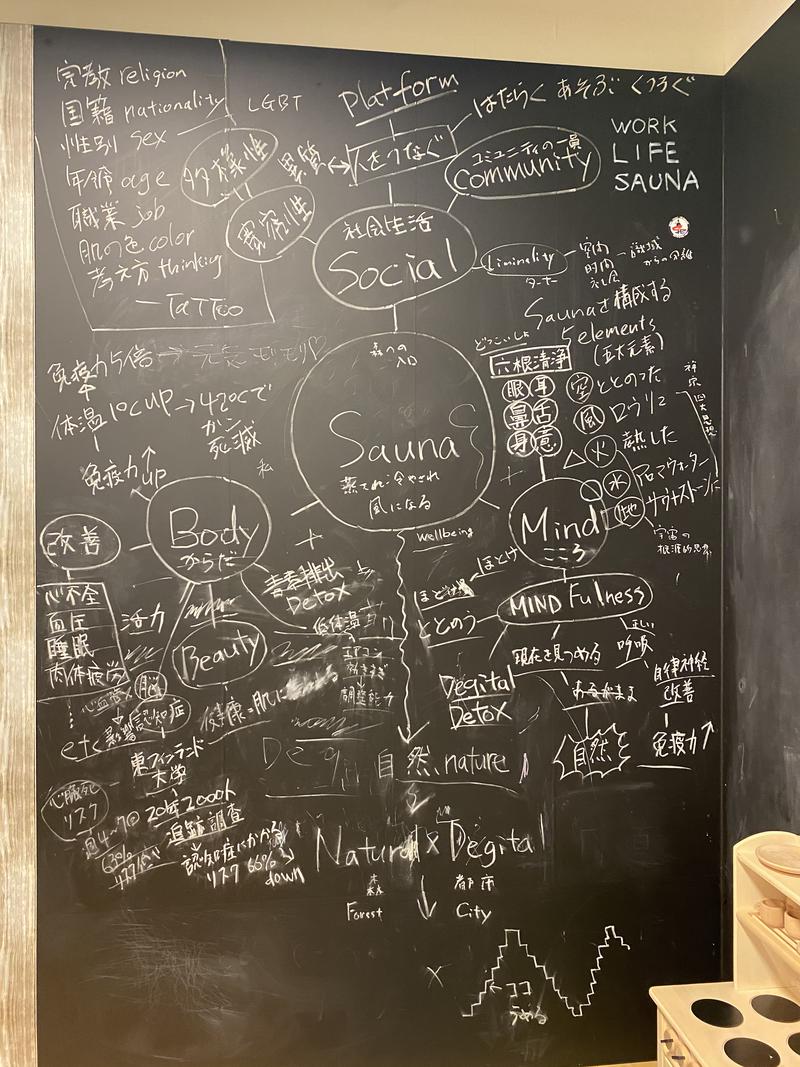 宗教 religion
国籍 nationality
性別 sex
年令 age
職業 job
肌の色 color
考え方 thinking
TaTToo
LGBT
多様性
寛容性
Platform
人をつなぐ
はたらく あそぶ くつろぐ
コミュニティの一員
Community
WORK
LIFE
SAUNA
社会生活
Social
Liminality
ターナー
空間
時間
Saunaを構成する
5 elements
(五大元素)
どっこいしょ
六根清浄
眼 耳
鼻 舌
身 意
空 ととのった
風 ロウリュ
火 熱した
水 アロマウォーター
地 サウナストーンに
宇宙の
根源的思考
森への
入口
Sauna
蒸され 冷やされ
風になる
免疫力5倍 → 元気モリモリ♡
体温 1℃UP → 42℃で
ガン
死滅
私
免疫力 up
Body
からだ
改善
心不全
血圧
睡眠
肉体疲労
etc
活力
Beauty
毒素排出
Detox
低体温
エアコン
効きすぎ
調整能力
健康=肌に
心血管
脳
認知症
影響
東フィンランド
大学
20年 2000人
追跡調査
心臓死
リスク
週4~7回
63%
リスク
認知症にかかる
リスク 66%
down
wellbeing
Mind
こころ
ほとけ
ととのう
MINDFulness
現在を見つめる
正しい
呼吸
自律神経
改善
免疫力↑
あるがまま
自然
Degital
Detox
自然 nature
Natural x Degital
森
Forest
都市
City
x
ココ
うめる